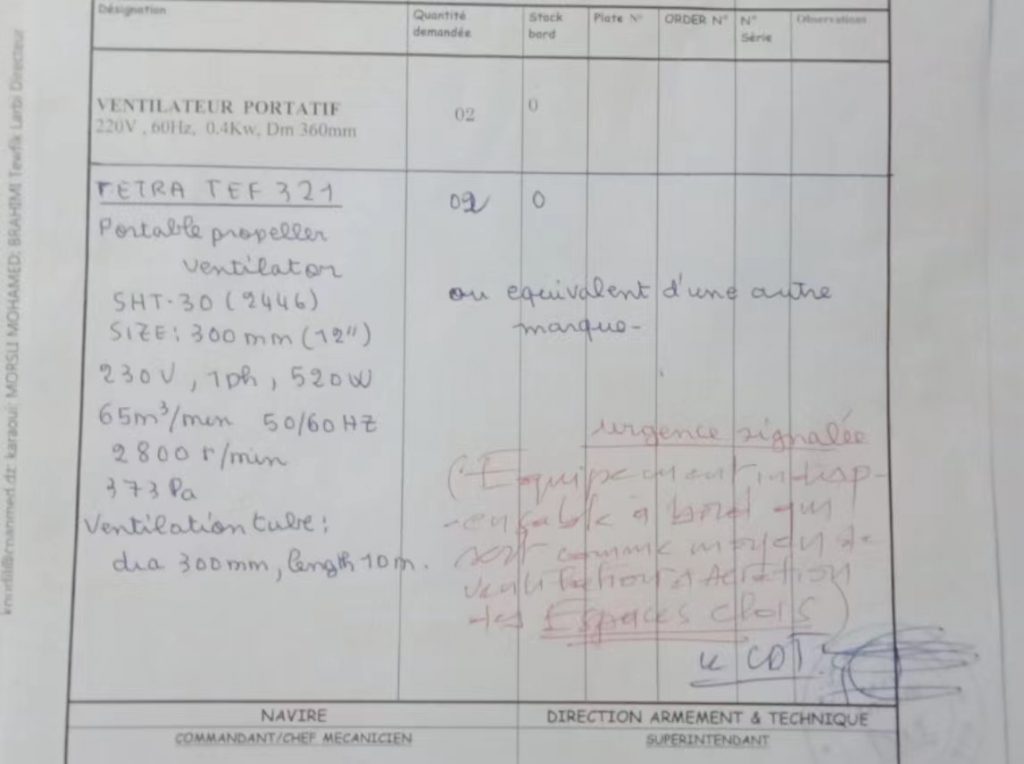 Désignation
Quantité demandée
Stock bord
Plate N°
ORDER N°
N° Série
Observations
VENTILATEUR PORTATIF
220V , 60Hz, 0.4Kw, Dm 360mm
02
0
FETRA TEF 321
02
0
Portable propeller
ventilator
SHT-30 (2446)
ou equivalent d'une autre
SIZE: 300 mm (12")
marque-
230V, 1ph, 520W
65m³/min 50/60 HZ
2800 r/min
373 Pa
Ventilation tube:
dia 300mm, length 10m.
urgence signalée
(Equipement indisp-
-ensable à bord qui
sert comme moyen de
ventilation & Aération
des Espaces clos)
le CDT.
NAVIRE
COMMANDANT/CHEF MECANICIEN
DIRECTION ARMEMENT & TECHNIQUE
SUPERINTENDANT
karaoui; MORSLI MOHAMED; BRAHIMI Tewfik Larbi Directeur